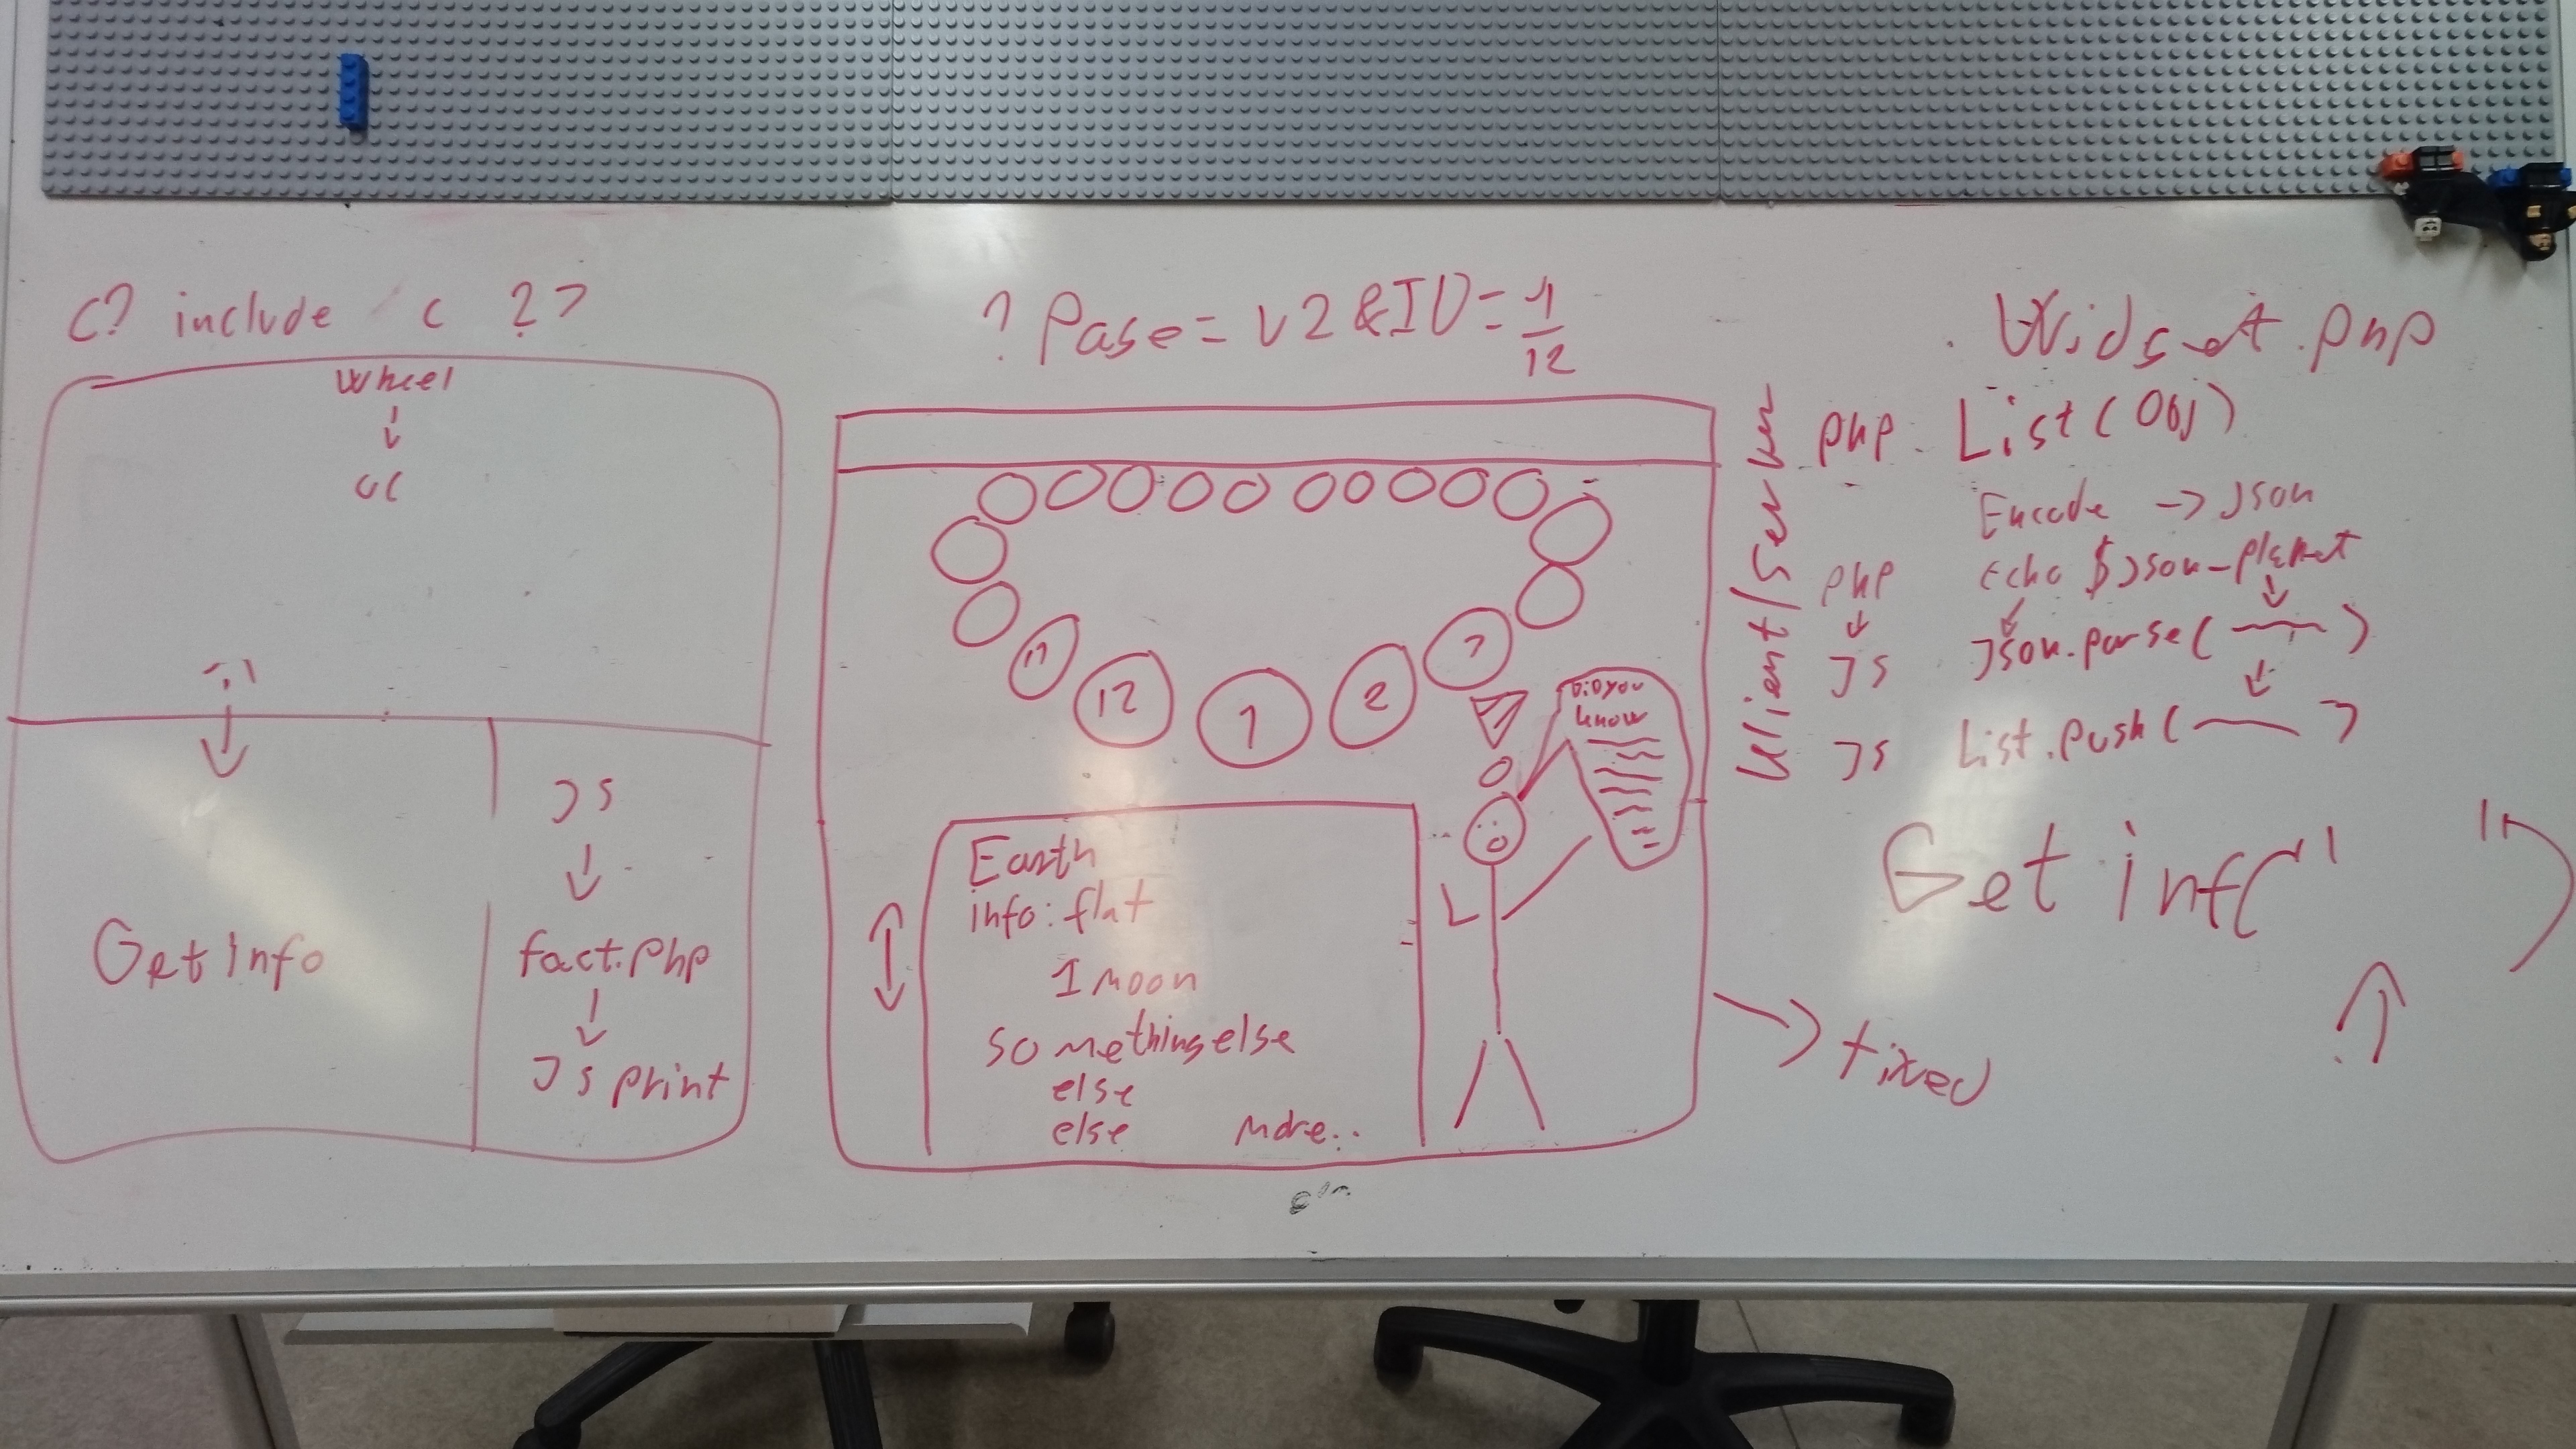 <? include / c ?>
Wheel
GetInfo
JS
fact.php
JS print
? Page = v2 & ID = 1
12
11
12
1
2
Did you
know
Earth
info: flat
1 moon
something else
else
else
More..
Klient/Server
Widget.php
php. List(Obj)
Encode -> Json
php Echo $Json_planet
JS Json.parse( )
JS List.push( )
Get inf(" ")
fixed